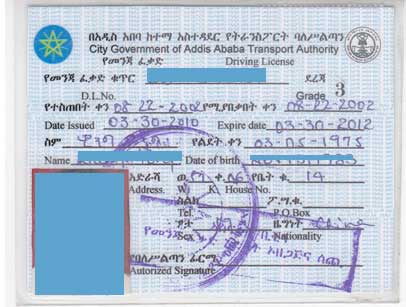 በአዲስ አበባ ከተማ አስተዳደር የትራንስፖርት ባለሥልጣን
City Government of Addis Ababa Transport Authority
የመንጃ ፈቃድ Driving License
የመንጃ ፈቃድ ቁጥር ደረጃ
D.L.No. Grade 3
የተሰጠበት ቀን 08-22-2002 የሚያበቃበት ቀን 08-22-2002
Date Issued 03-30-2010 Expire date 03-30-2012
ስም የልደት ቀን 03-05-1975
Name Date of birth
አድራሻ ወ. ቀ. የቤት ቁ. 14
Address. W. K. House No.
ስልክ ፖ.ሣ.ቁ.
Tel. P.O.Box
ፆታ ዜግነት
Sex Nationality
የባለሥልጣን ፊርማ
Autorized Signature